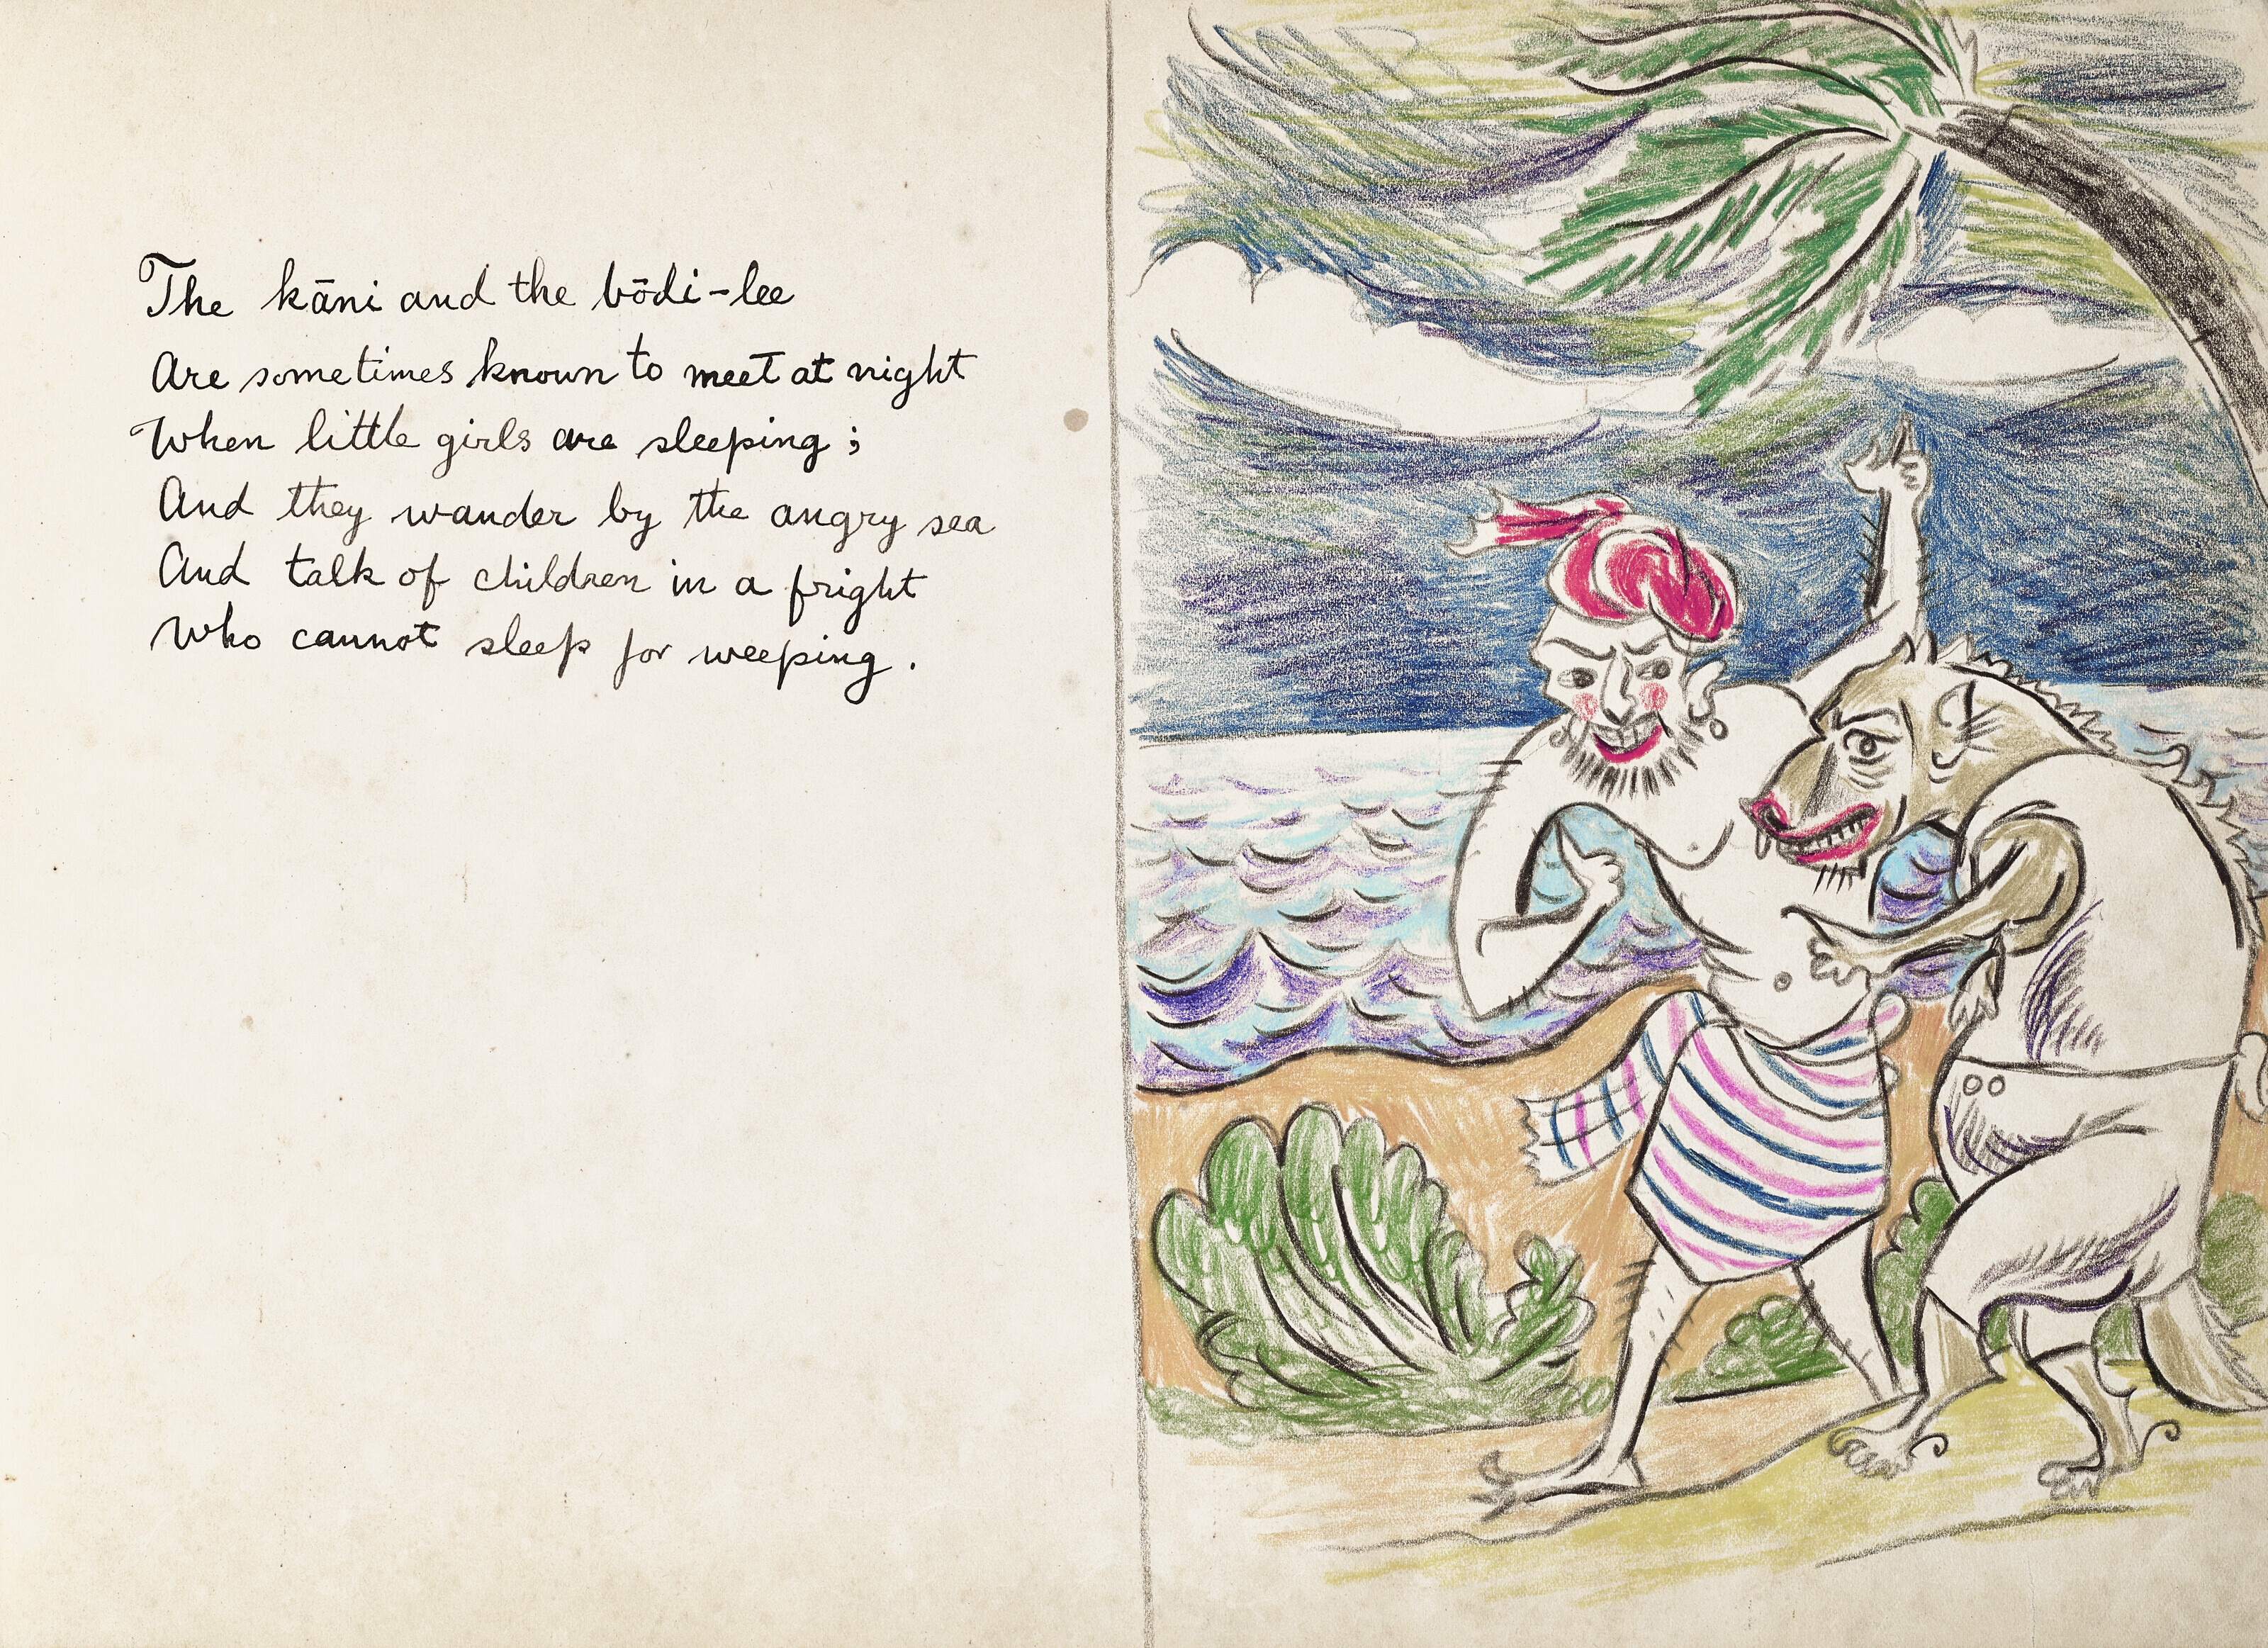 The kāni and the bōdi-lee
Are sometimes known to meet at night
When little girls are sleeping ;
And they wander by the angry sea
And talk of children in a fright
Who cannot sleep for weeping .